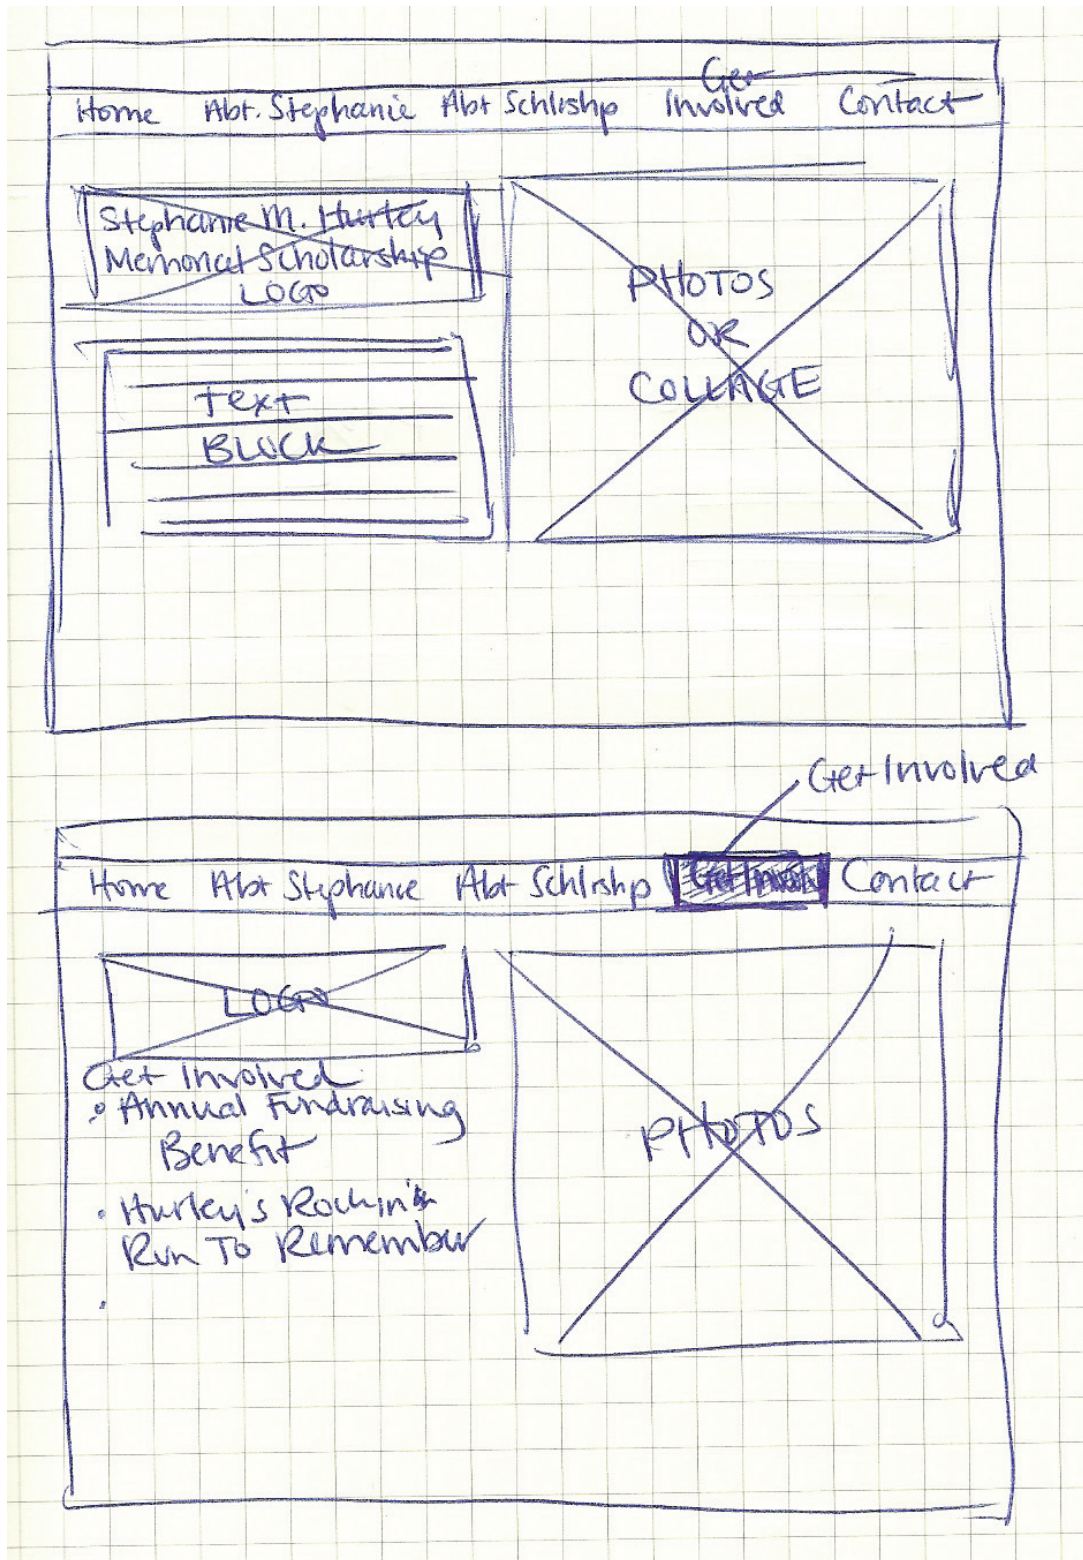 Home Abt. Stephanie Abt Schlrshp Get Involved Contact
Stephanie M. Hurley
Memorial Scholarship
LOGO
PHOTOS
OR
COLLAGE
text
BLOCK
Get Involved
Home Abt Stephanie Abt Schlrshp Get Involved Contact
LOGO
Get Involved
• Annual Fundraising
Benefit
• Hurley's Rockin'
Run To Remember
•
PHOTOS